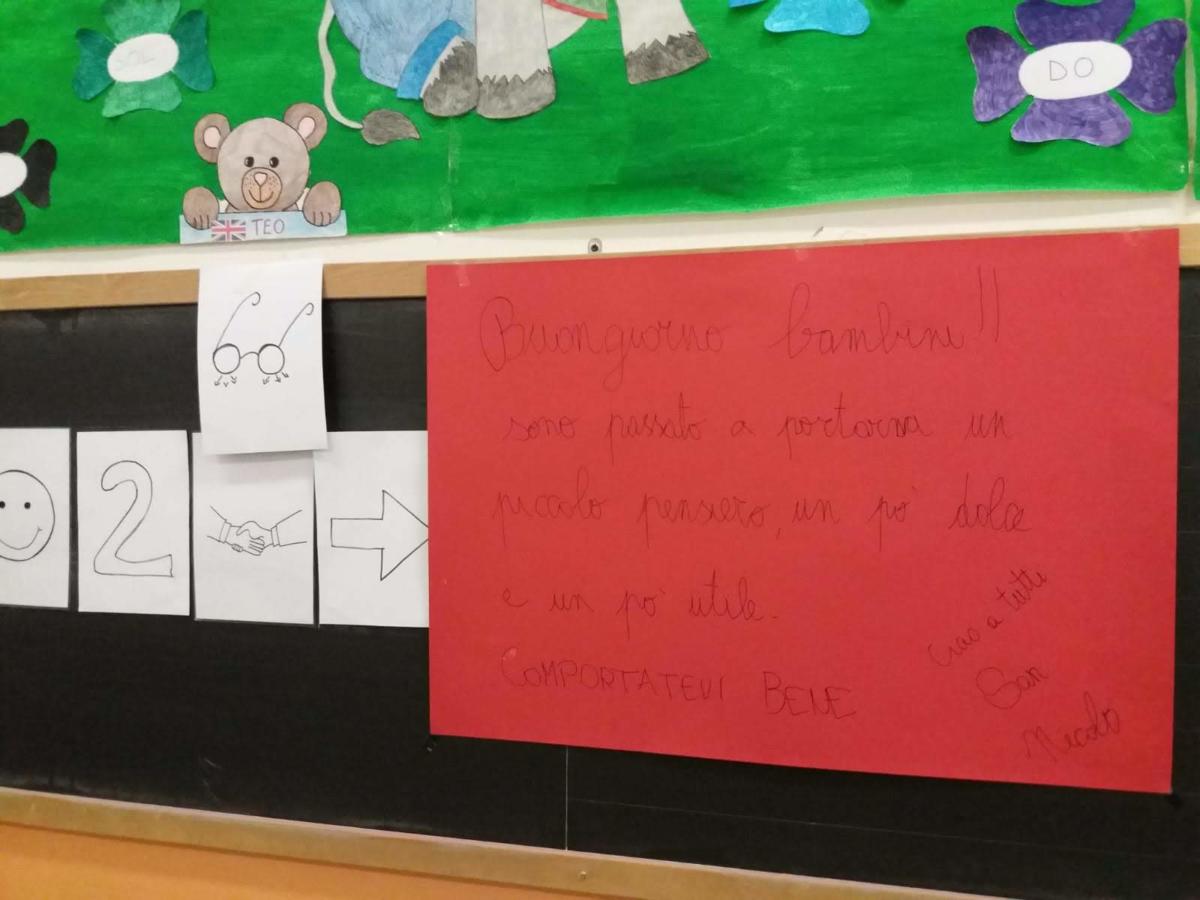 SOL
DO
TEO
2
Buongiorno bambini!!
sono passato a portarvi un
piccolo pensiero, un po' dolce
e un po' utile.
COMPORTATEVI BENE
Ciao a tutti
San
Nicolò